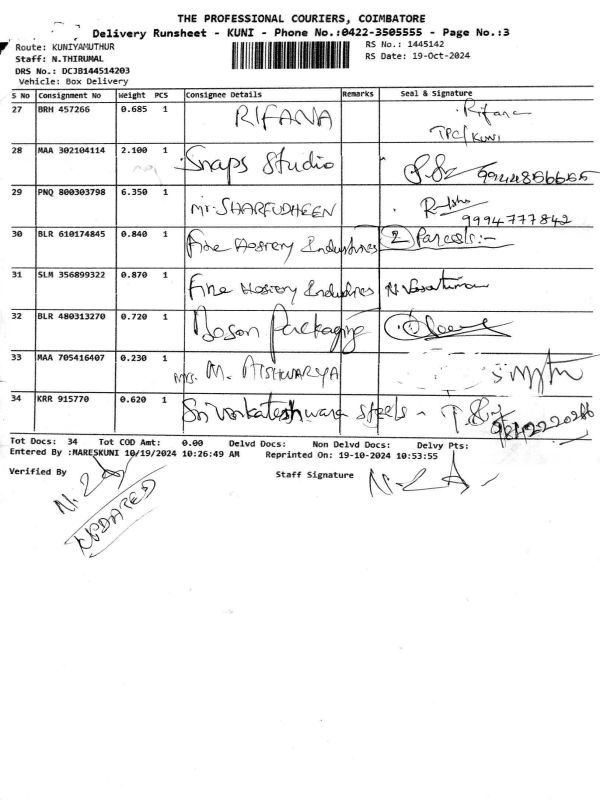 THE PROFESSIONAL COURIERS, COIMBATORE
Delivery Runsheet - KUNI - Phone No.:0422-3505555 - Page No.:3
Route: KUNIYAMUTHUR
RS No.: 1445142
Staff: N.THIRUMAL
RS Date: 19-Oct-2024
DRS No.: DCJB144514203
Vehicle: Box Delivery
S No Consignment No Weight PCS Consignee Details Remarks Seal & Signature
27 BRH 457266 0.685 1 RIFANA Rifana
TPC/KUNI
28 MAA 302104114 2.100 1 Snaps Studio
29 PNQ 800303798 6.350 1 Mr. SHARFUDHEEN
9994777842
30 BLR 610174845 0.840 1 Fine Hosiery Industries 2 Parcels:-
31 SLM 356899322 0.870 1 Fine Hosiery Industries
32 BLR 480313270 0.720 1 Packaging
33 MAA 705416407 0.230 1 Mrs. M. AISHWARYA
34 KRR 915770 0.620 1 Sri Venkateshwara Steels -
Tot Docs: 34 Tot COD Amt: 0.00 Delvd Docs: Non Delvd Docs: Delvy Pts:
Entered By :MARESKUNI 10/19/2024 10:26:49 AM Reprinted On: 19-10-2024 10:53:55
Verified By Staff Signature
UPDATED